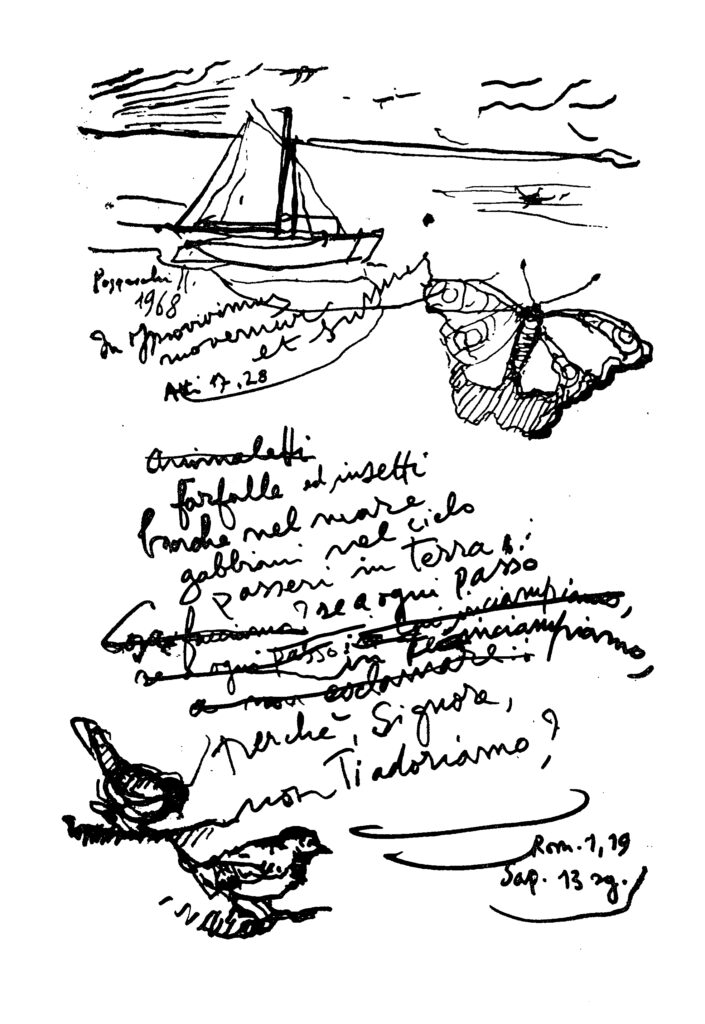 1968
In Ipso vivimus
movemur
et sumus
Atti 17, 28
animaletti
farfalle ed insetti
barche nel mare
gabbiani nel cielo
passeri in terra:
Cosa facciamo? se a ogni passo
se a ogni passo: in inciampiamo,
in Te inciampiamo,
a non esclamare:
Perchè, Signore,
non Ti adoriamo?
Rom. 1, 19
Sap. 13 sg.